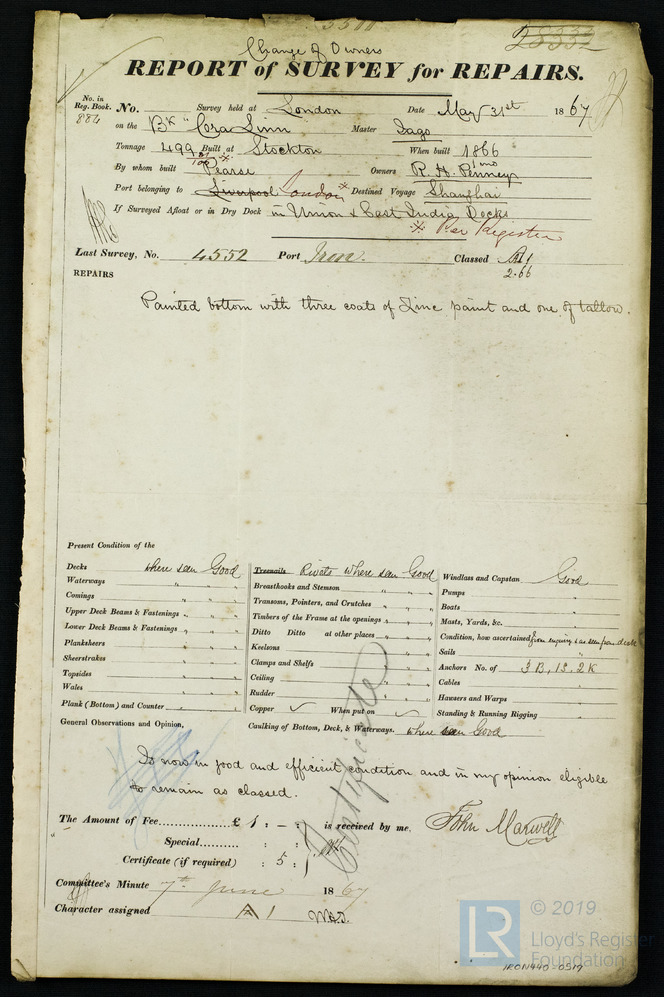 28332
Change of Owners
REPORT of SURVEY for REPAIRS.
No. in Reg. Book. No. Survey held at London Date May 31st 1867
884 on the Bk "Cora Linn" Master Iago
Tonnage 499 Built at Stockton When built 1866
By whom built Pearse Owners R. H. Penney
Port belonging to Liverpool London * Destined Voyage Shanghai
If Surveyed Afloat or in Dry Dock in Union & East India Docks
* Per Register
Last Survey, No. 4552 Port Iron. Classed A1
2.66
REPAIRS
Painted bottom with three coats of Zinc paint and one of tallow.
Present Condition of the
Decks where seen Good Treenails Rivets where seen Good Windlass and Capstan Good
Waterways " " Breasthooks and Stemson " " Pumps "
Comings " " Transoms, Pointers, and Crutches " " Boats "
Upper Deck Beams & Fastenings " " Timbers of the Frame at the openings " " Masts, Yards, &c. "
Lower Deck Beams & Fastenings " " Ditto Ditto at other places " " Condition, how ascertained from enquiry & as seen from deck
Planksheers " " Keelsons " " Sails "
Sheerstrakes " " Clamps and Shelfs " " Anchors No. of 3 B, 1S, 2K
Topsides " " Ceiling " " Cables "
Wales " " Rudder " " Hawsers and Warps "
Plank (Bottom) and Counter " " Copper ✓ When put on ✓ Standing & Running Rigging "
General Observations and Opinion, Caulking of Bottom, Deck, & Waterways. where seen Good
Is now in good and efficient condition and in my opinion eligible
to remain as classed.
Certificate
The Amount of Fee........... £ 1 : – : is received by me, John Maxwell
Special............... : :
Certificate (if required) : 5 :
Committee's Minute 7th June 1867
Character assigned A 1
© 2019
LR
Lloyd's Register
Foundation
IRON440-0517